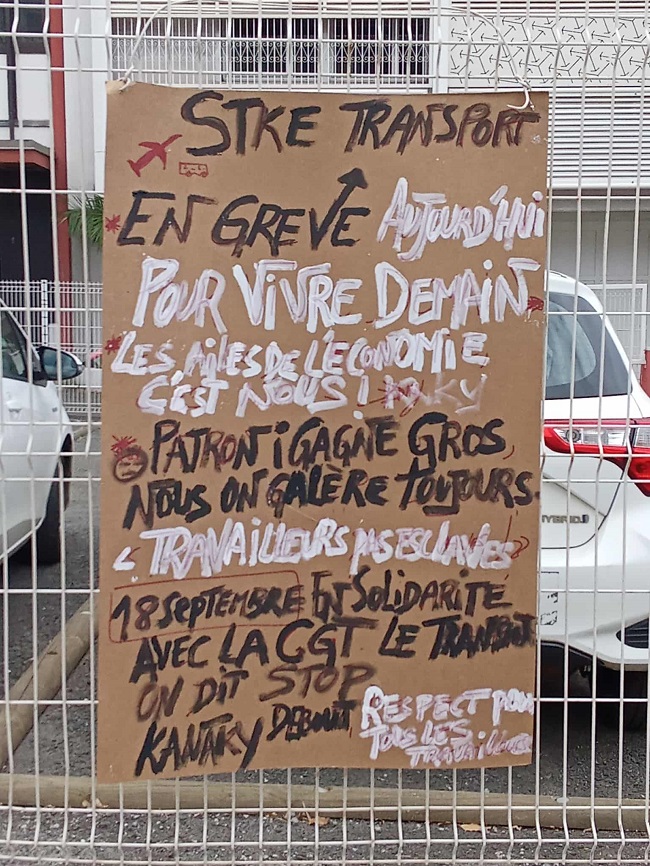 STKE TRANSPORT
EN GREVE AUJOURD'HUI
POUR VIVRE DEMAIN
LES AILES DE L'ÉCONOMIE
C'EST NOUS !
PATRON i GAGNE GROS,
NOUS ON GALÈRE TOUJOURS.
"TRAVAILLEURS PAS ESCLAVES"
18 SEPTEMBRE EN SOLIDARITÉ
AVEC LA CGT LE TRANSPORT
ON DIT STOP
KANAKY DEBOUT
RESPECT POUR
TOUS LES
TRAVAILLEURS
HYBRID